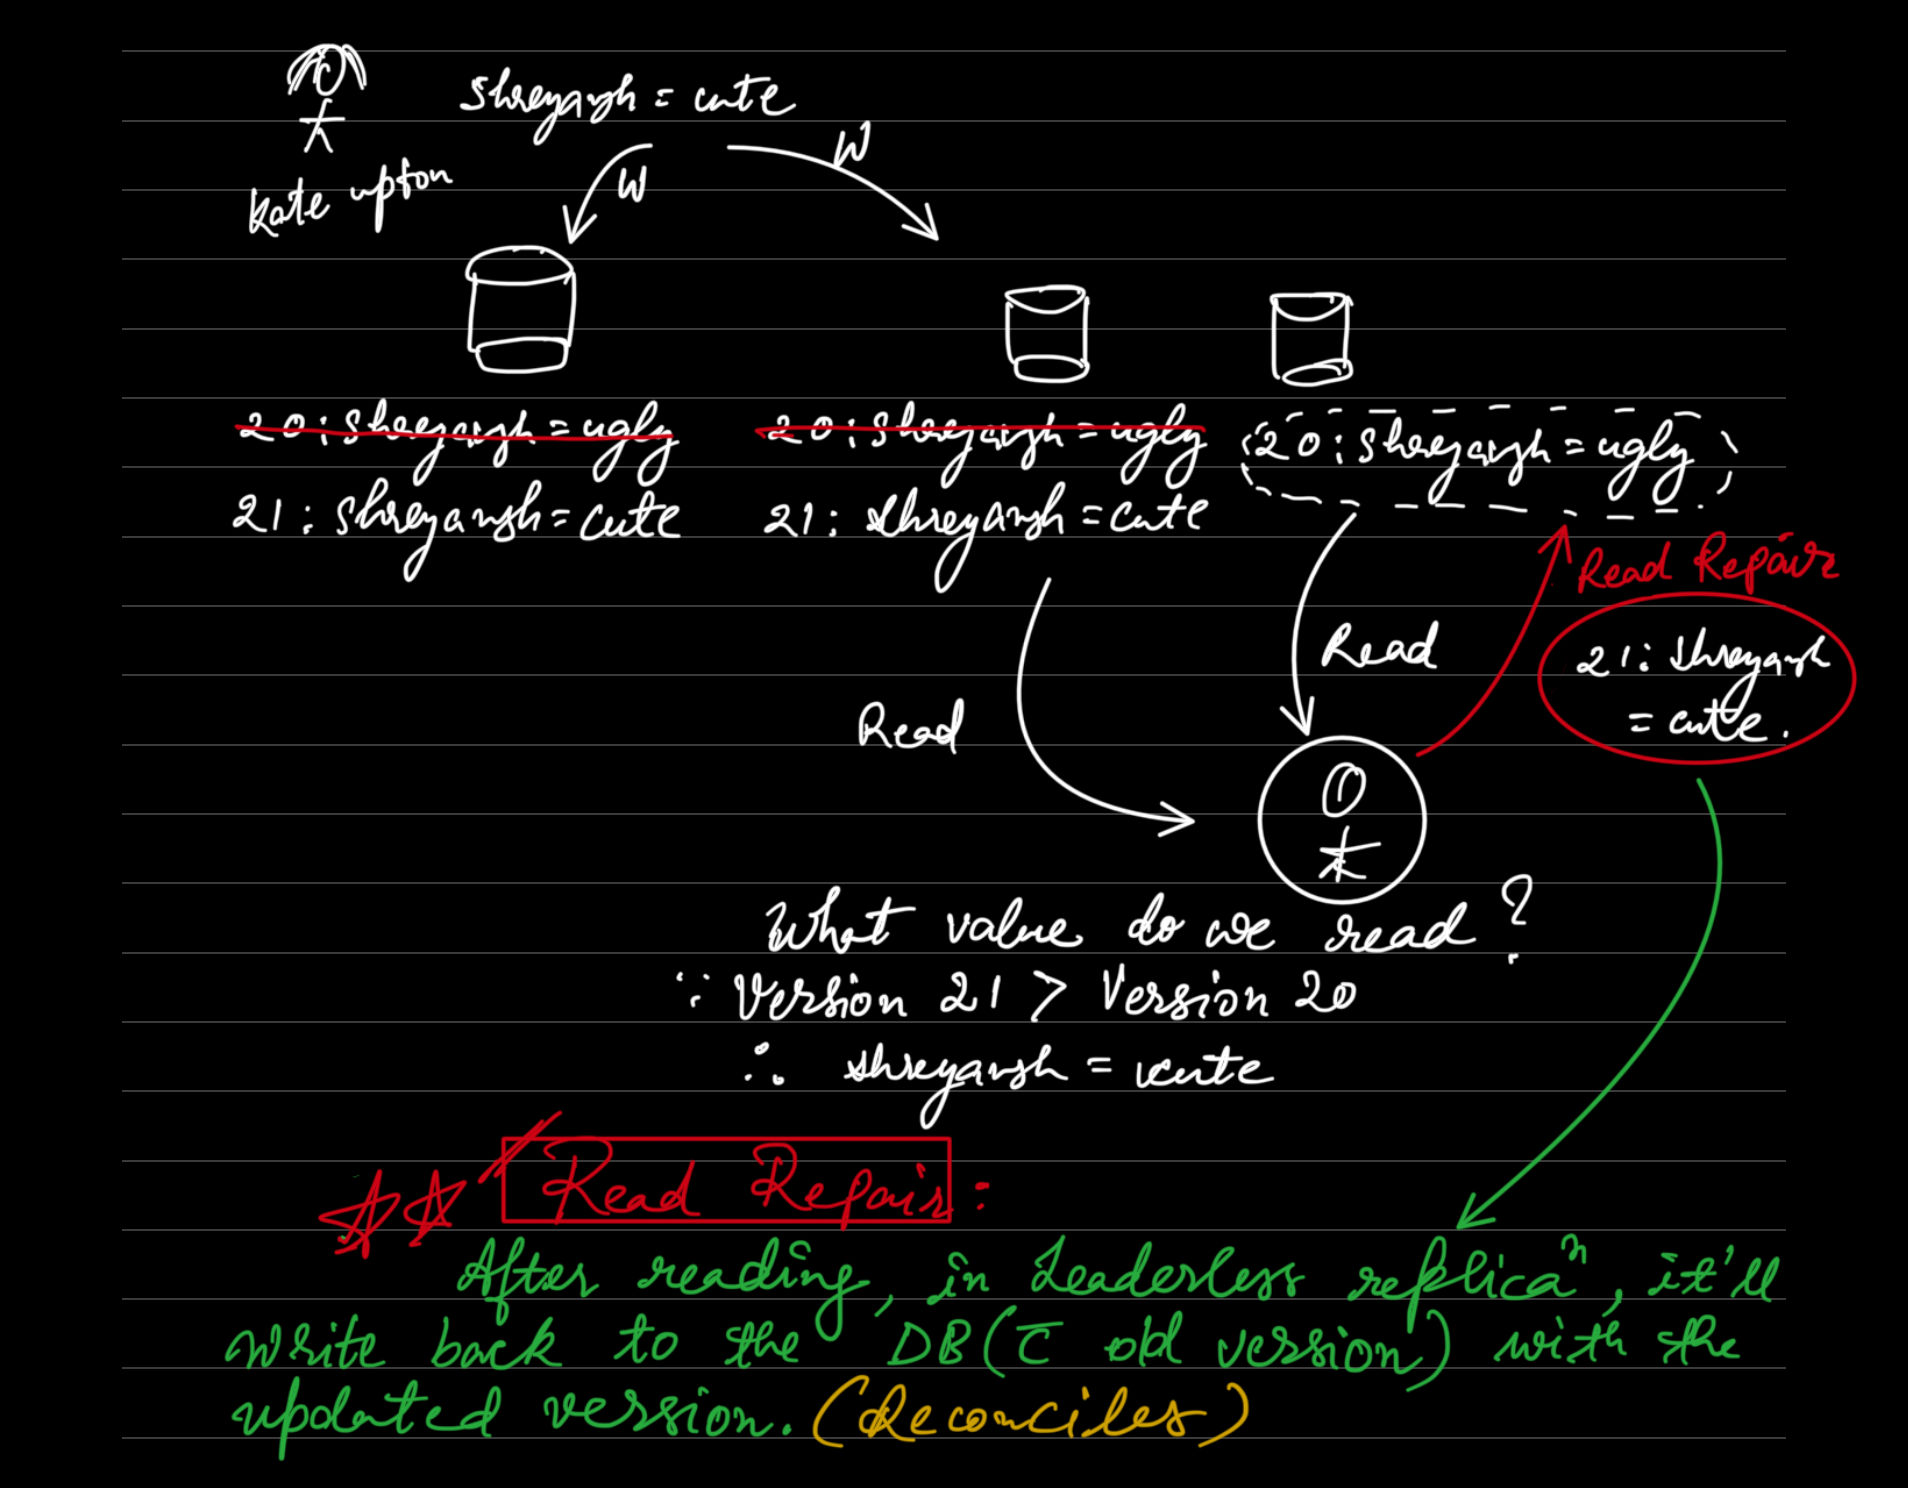 Shreyansh = cute
W
W
Kate upton
20: Shreyansh = ugly
20: Shreyansh = ugly
20: Shreyansh = ugly
21: Shreyansh = cute
21: Shreyansh = cute
Read Repair
Read
21: Shreyansh
= cute.
Read
What value do we read?
∵ Version 21 > Version 20
∴ Shreyansh = cute
Read Repair:
After reading, in Leaderless replicaⁿ, it'll
write back to the DB (c̅ old version) with the
updated version. (Reconciles)